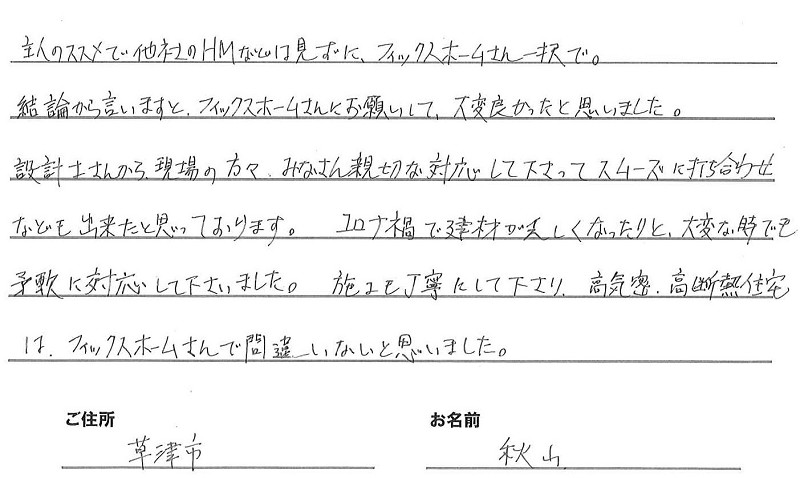 主人のススメで他社のHMなどは見ずに、フィックスホームさん一択で。
結論から言いますと、フィックスホームさんにお願いして、大変良かったと思いました。
設計士さんから、現場の方々、みなさん親切な対応して下さってスムーズに打ち合わせ
なども出来たと思っております。 コロナ禍で建材が乏しくなったりと、大変な時でも
柔軟に対応して下さいました。 施工も丁寧にして下さり、高気密、高断熱住宅
は、フィックスホームさんで間違いないと思いました。
ご住所 お名前
草津市 秋山